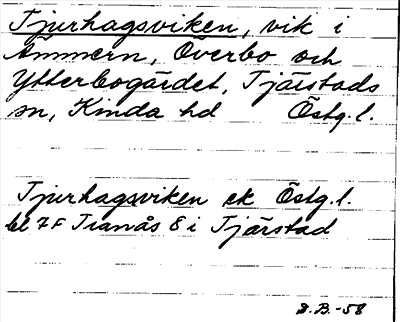 Tjurhagsviken, vik i
Ämmern, Överbo och
Ytterbogärdet, Tjärstads
sn, Kinda hd Östg.l.
Tjurhagsviken ek Östg.l.
bl 7F Tranås S i Tjärstad
B.B.-58